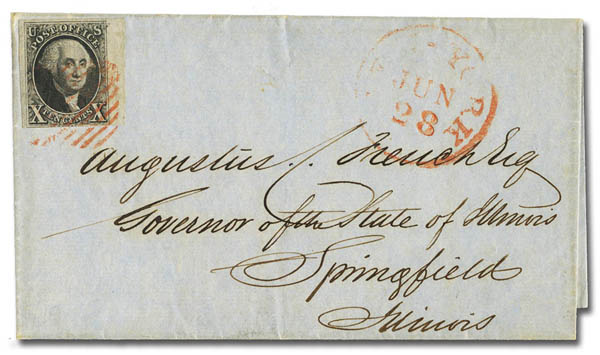 U S
POST OFFICE
X TEN CENTS X
NEW-YORK
JUN
28
Augustus C. French Esq
Governor of the State of Illinois
Springfield
Illinois